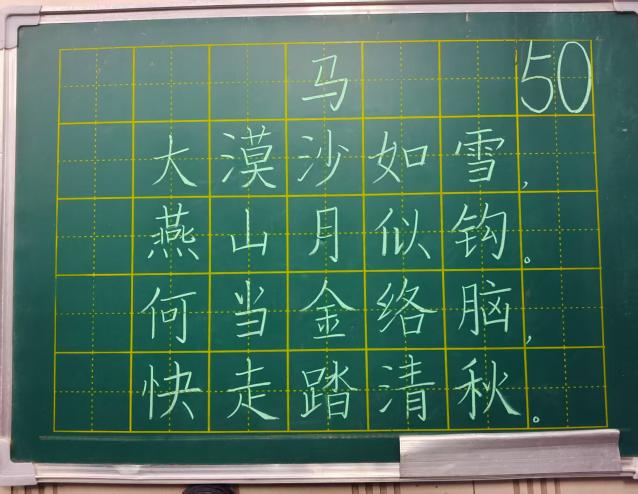 马 50
大漠沙如雪，
燕山月似钩。
何当金络脑，
快走踏清秋。